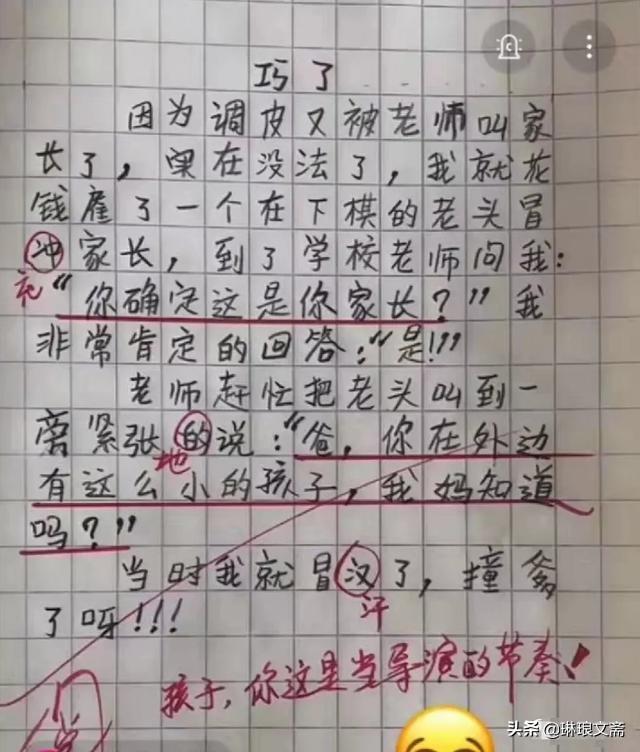 巧了
因为调皮又被老师叫家
长了，实在没法了，我就花
钱雇了一个在下棋的老头冒
冲家长，到了学校老师问我：
充
“你确定这是你家长？”我
非常肯定的回答：“是!!!”
老师赶忙把老头叫到一
旁紧张的说：“爸，你在外边
地
有这么小的孩子，我妈知道
吗？”
当时我就冒汉了，撞爹
汗
了呀!!!
孩子，你这是当导演的节奏！
头条 @琳琅文斋